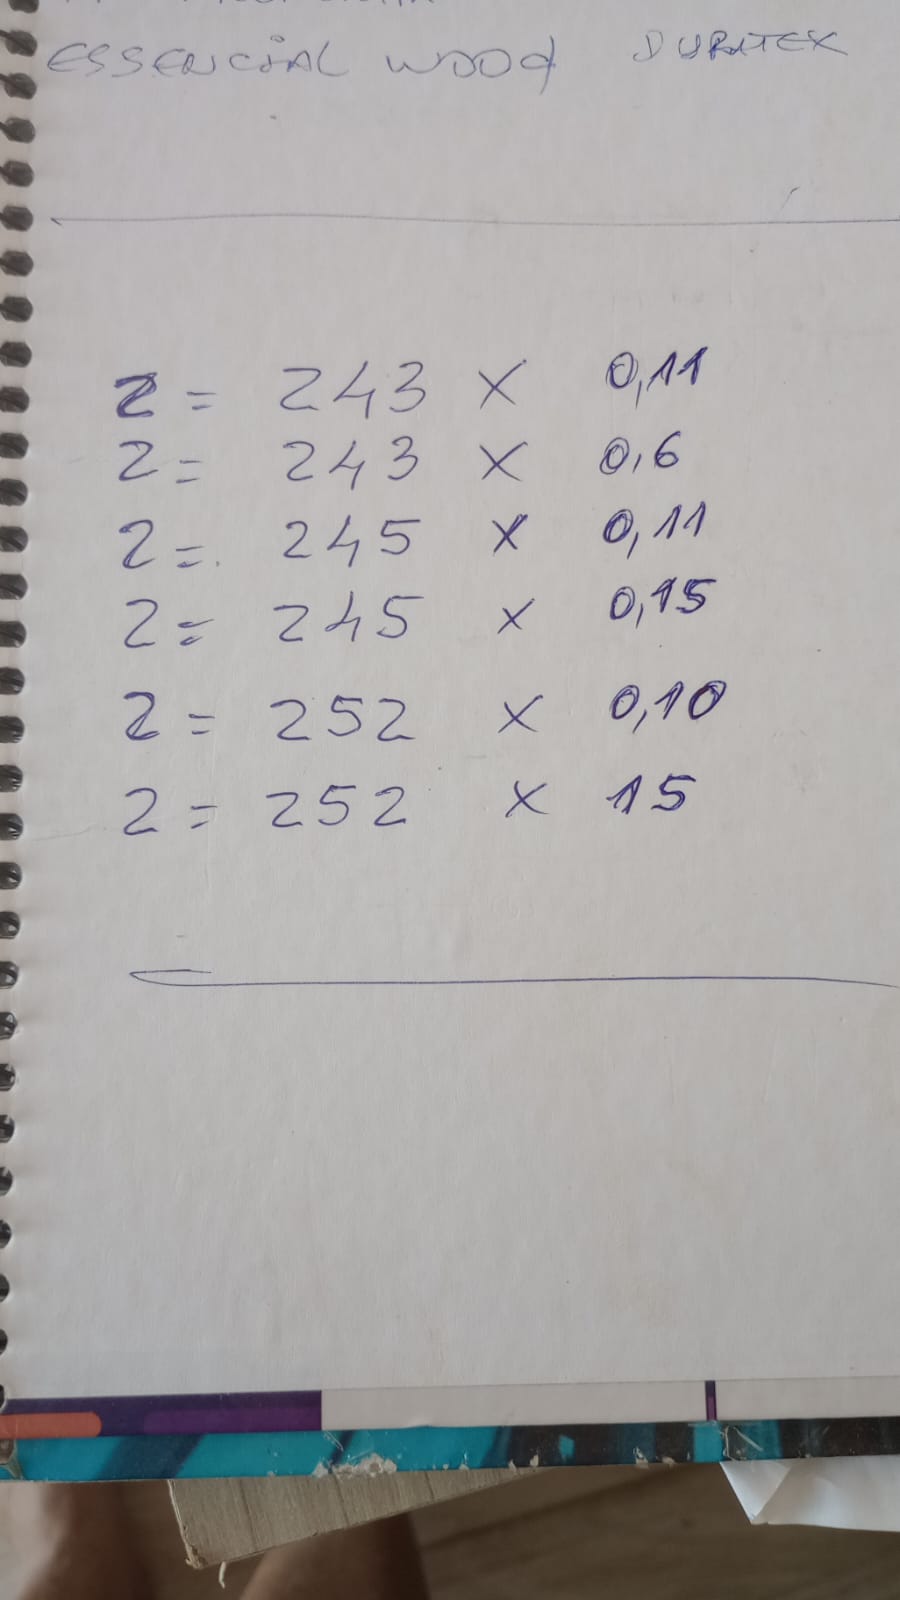 ESSENCIAL WOOD DURATEX
2 = 243 X 0,11
2 = 243 X 0,6
2 = 245 X 0,11
2 = 245 X 0,15
2 = 252 X 0,10
2 = 252 X 15